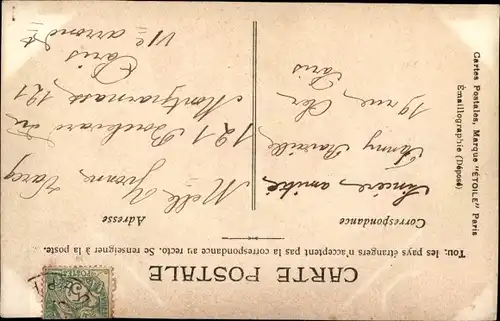 CARTE POSTALE
Tou; les pays étrangers n'acceptent pas la correspondance au recto. Se renseigner à la poste.
Correspondance
Adresse
Sincère amitié
Fanny
19 rue
Paris
Melle Yvonne
121 Boulevard du
Montparnasse 121
Paris
VIe arrondt
Cartes Postales, Marque "ÉTOILE" Paris
Émaillographie (Déposé)